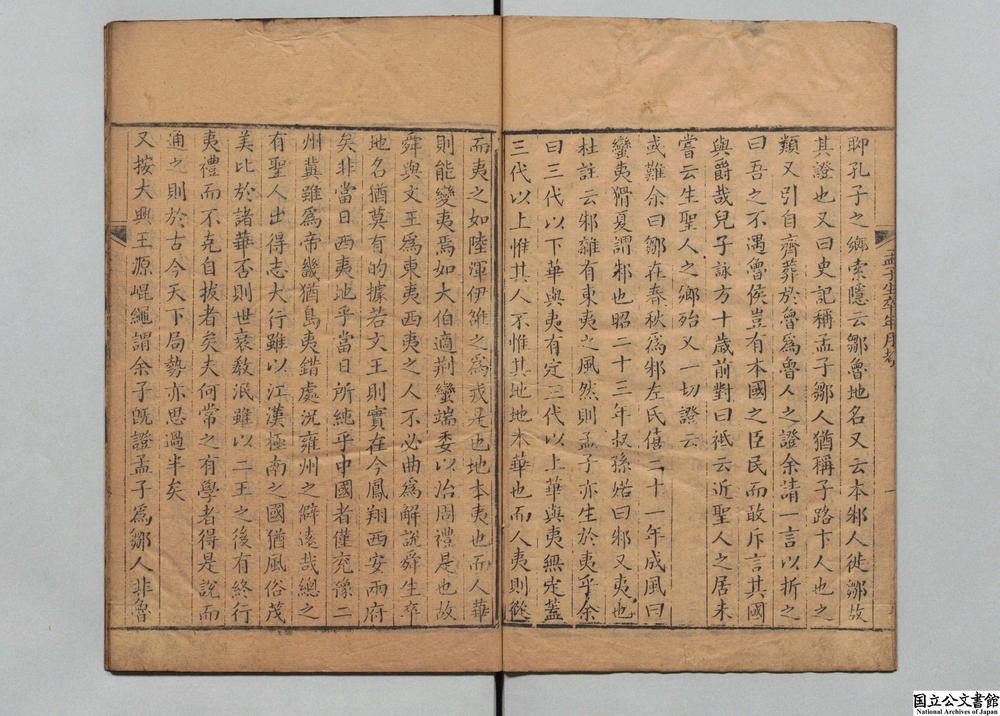 聊孔子之鄉索隱云鄒魯地名又云本邾人徙鄒故
其證也又曰史記稱孟子鄒人猶稱子路卞人也之
類又引自齊葬於魯爲魯人之證余請一言以折之
曰吾之不遇魯侯豈有本國之臣民而敢斥言其國
與爵哉兒子詠方十歲前對曰祗云近聖人之居未
嘗云生聖人之鄉殆又一切證云
或難余曰鄒在春秋爲邾左氏僖二十一年成風曰
蠻夷猾夏謂邾也昭二十三年叔孫婼曰邾又夷也
杜註云邾雜有東夷之風然則孟子亦生於夷乎余
曰三代以下華與夷有定三代以上華與夷無定蓋
三代以上惟其人不惟其地地本華也而人夷則從
孟子生卒年月考
一
而夷之如陸渾伊雒之爲戎是也地本夷也而人華
則能變夷焉如大伯適荆蠻端委以治周禮是也故
舜與文王爲東夷西夷之人不必曲爲解說舜生卒
地名猶莫有的據若文王則實在今鳳翔西安兩府
矣非當日西夷地乎當日所純乎中國者僅兖豫二
州冀雖爲帝畿猶島夷錯處況雍州之僻遠哉總之
有聖人出得志大行雖以江漢極南之國猶風俗茂
美比於諸華否則世衰教泯雖以二王之後有終行
夷禮而不克自拔者矣夫何常之有學者得是說而
通之則於古今天下局勢亦思過半矣
又按大興王源崐繩謂余子旣證孟子爲鄒人非魯
国立公文書館
National Archives of Japan